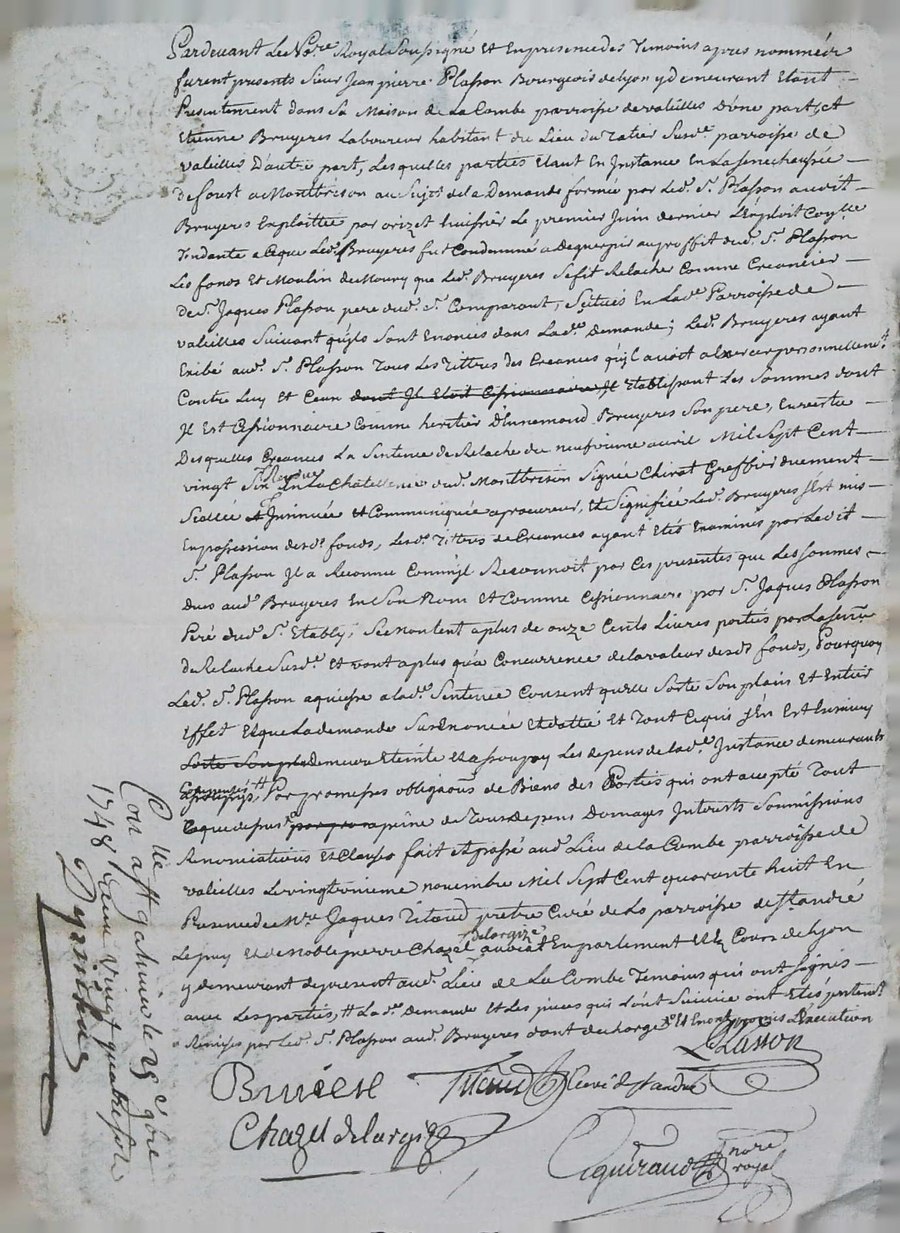 Pardevant Le No.re Royal Soussigné Et Enpresence des Temoins apres nommées
furent presents Sieur Jean pierre Plasson Bourgeois de lyon y demeurant Etant
Presentement dans Sa Maison de La Combe parroisse de valeilles D'une part, et
Etienne Bruyeres Laboureur habitant du Lieu du ratier Susd.e parroisse de
valeilles D'autre part, Lesquelles parties Etant En Instance En La Senechaussée
de forest a Montbrison au Sujet de la Demande formée par Led. S.r Plasson aud.it
Bruyeres Exploittée par orizet huissier Le premier Juin dernier L'exploit
Tendante a Ceque Led. Bruyeres fut Condamné a Deguerpir au proffit dud. S.r Plasson
Les fonds Et Moulin que Led. Bruyeres Sefit Relacher Comme Creancier
de S.r Jaques Plasson pere dud. S.r Comparant, Scitués En Lad.e Parroisse de
valeilles Suivant qu'ils Sont Enoncés dans Lad.e Demande; Led. Bruyeres ayant
Exibé aud. S.r Plasson Tous Les Tittres des Creances qu'il avoit a Exercer personnellem.t
Contre Luy Et Ceux dont Il Etoit Cessionnaire Et Etablissant Les Sommes dont
Il Est Cessionnaire Comme heritier D'Ennemond Bruyeres Son pere, En vertu
Desquelles Creances La Sentence de Relache du neufvieme avril Mil Sept Cent
vingt Six Rendue En La Chatellenie dud. Montbrison Signée Chirat Greffier duement
Scellée Et Insinuée et Communiquée a procureur, Et Signifiée Led. Bruyeres S'Est mis
En possession desd. fonds, Lesd. Tittres de Creances ayant Etés Examinés par Ledit
S.r Plasson Il a Reconnu Comm'Il Reconnoit par Ces presentes que Les Sommes
Dues aud. Bruyeres En Son Nom Et Comme Cessionnaire par S.r Jaques Plasson
Peré dud. S.r Etably, Se Montent a plus de onze Cents Livres portés par La Sen.ce
de Relache Susd.e Et vont a plus qu'a Concurrence de la valeur desd. fonds, Pourquoy
Led. S.r Plasson aquiesse a lad.e Sentence Consent qu'elle Sorte Son plain Et Entier
Effet Et que La demande Sus Enoncée Et dattée Et Tout Cequi s'En Est Ensuivy
Sorte Son ple Demeure Eteinte Et assoupy Les depens de lad.e Instance demeurants
Compensés, Par promesses obligaons de Biens des Parties qui ont accepté Tout
Ceque dessus par prom a peine de Tous Depens Domages Interests Soummissions
Renonciations Et Clauses fait Et passé aud. Lieu de La Combe parroisse de
valeilles Le vingt onieme novembre Mil Sept Cent quarante huit En
Presence de M.re Jaques Titaud pretre Curé de La parroisse de St andré
Le puy Et de Noble pierre Chazel Delargize avocat En parlement Et Cours de Lyon
y demeurant de present aud. Lieu de La Combe Temoins qui ont Signés
avec Les parties, Lad.e Demande Et Les pieces qui L'ont Suivie ont Etés presentem.t
Remises par Led. S.r Plasson aud. Bruyeres dont decharge
Plasson
Bruiere Titaud Curé de St andré
Chazel delargize
Eguiraud nore royal
Con.lle a St galmier le 25 9bre
1748 Recu vingt quatre sols